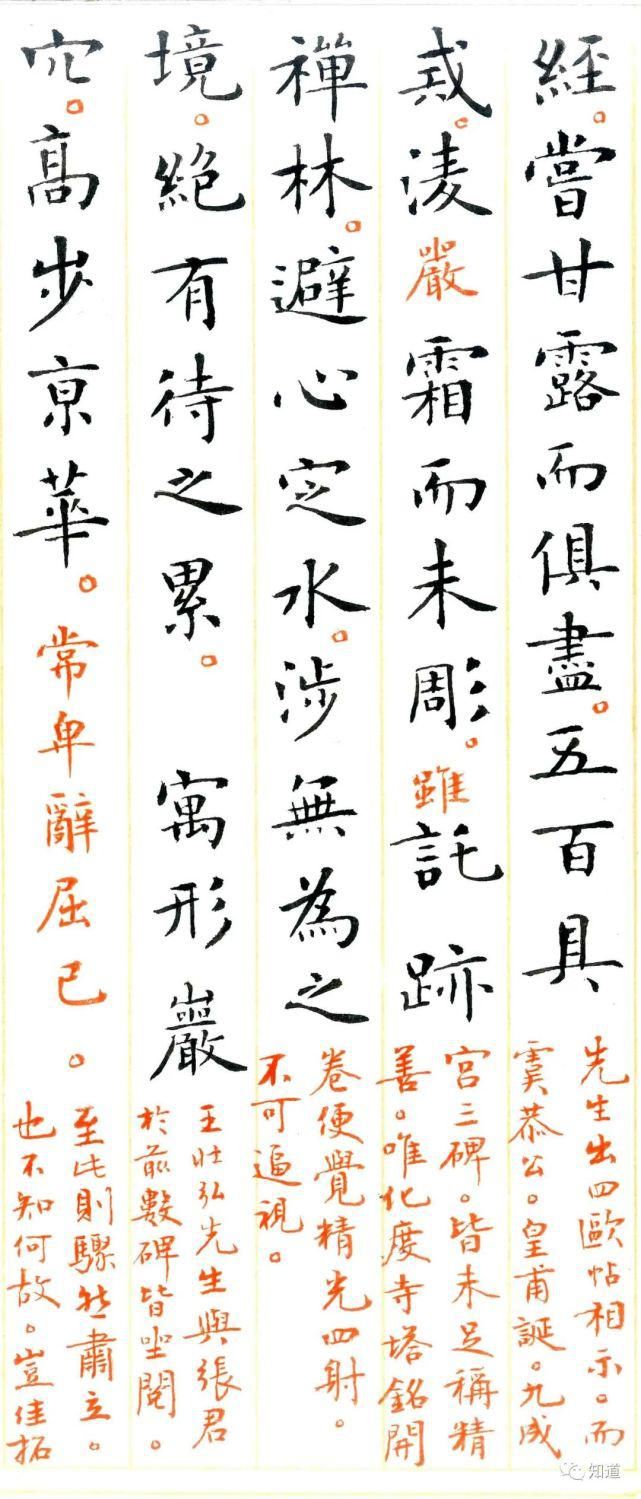 經。嘗甘露而俱盡。五百具
先生出四歐帖相示。而
虞恭公。皇甫誕。九成
戒。淩嚴霜而未彫。雖託跡
宮三碑。皆未足稱精
善。唯化度寺塔銘開
禪林。避心定水。涉無為之
卷便覺精光四射。
不可逼視。
境。絕有待之累。寓形巖
王壯弘先生與張君
於前數碑皆坐閱。
穴。高步京華。常卑辭屈己。
至此則驟然肅立。
也不知何故。豈佳拓
知道